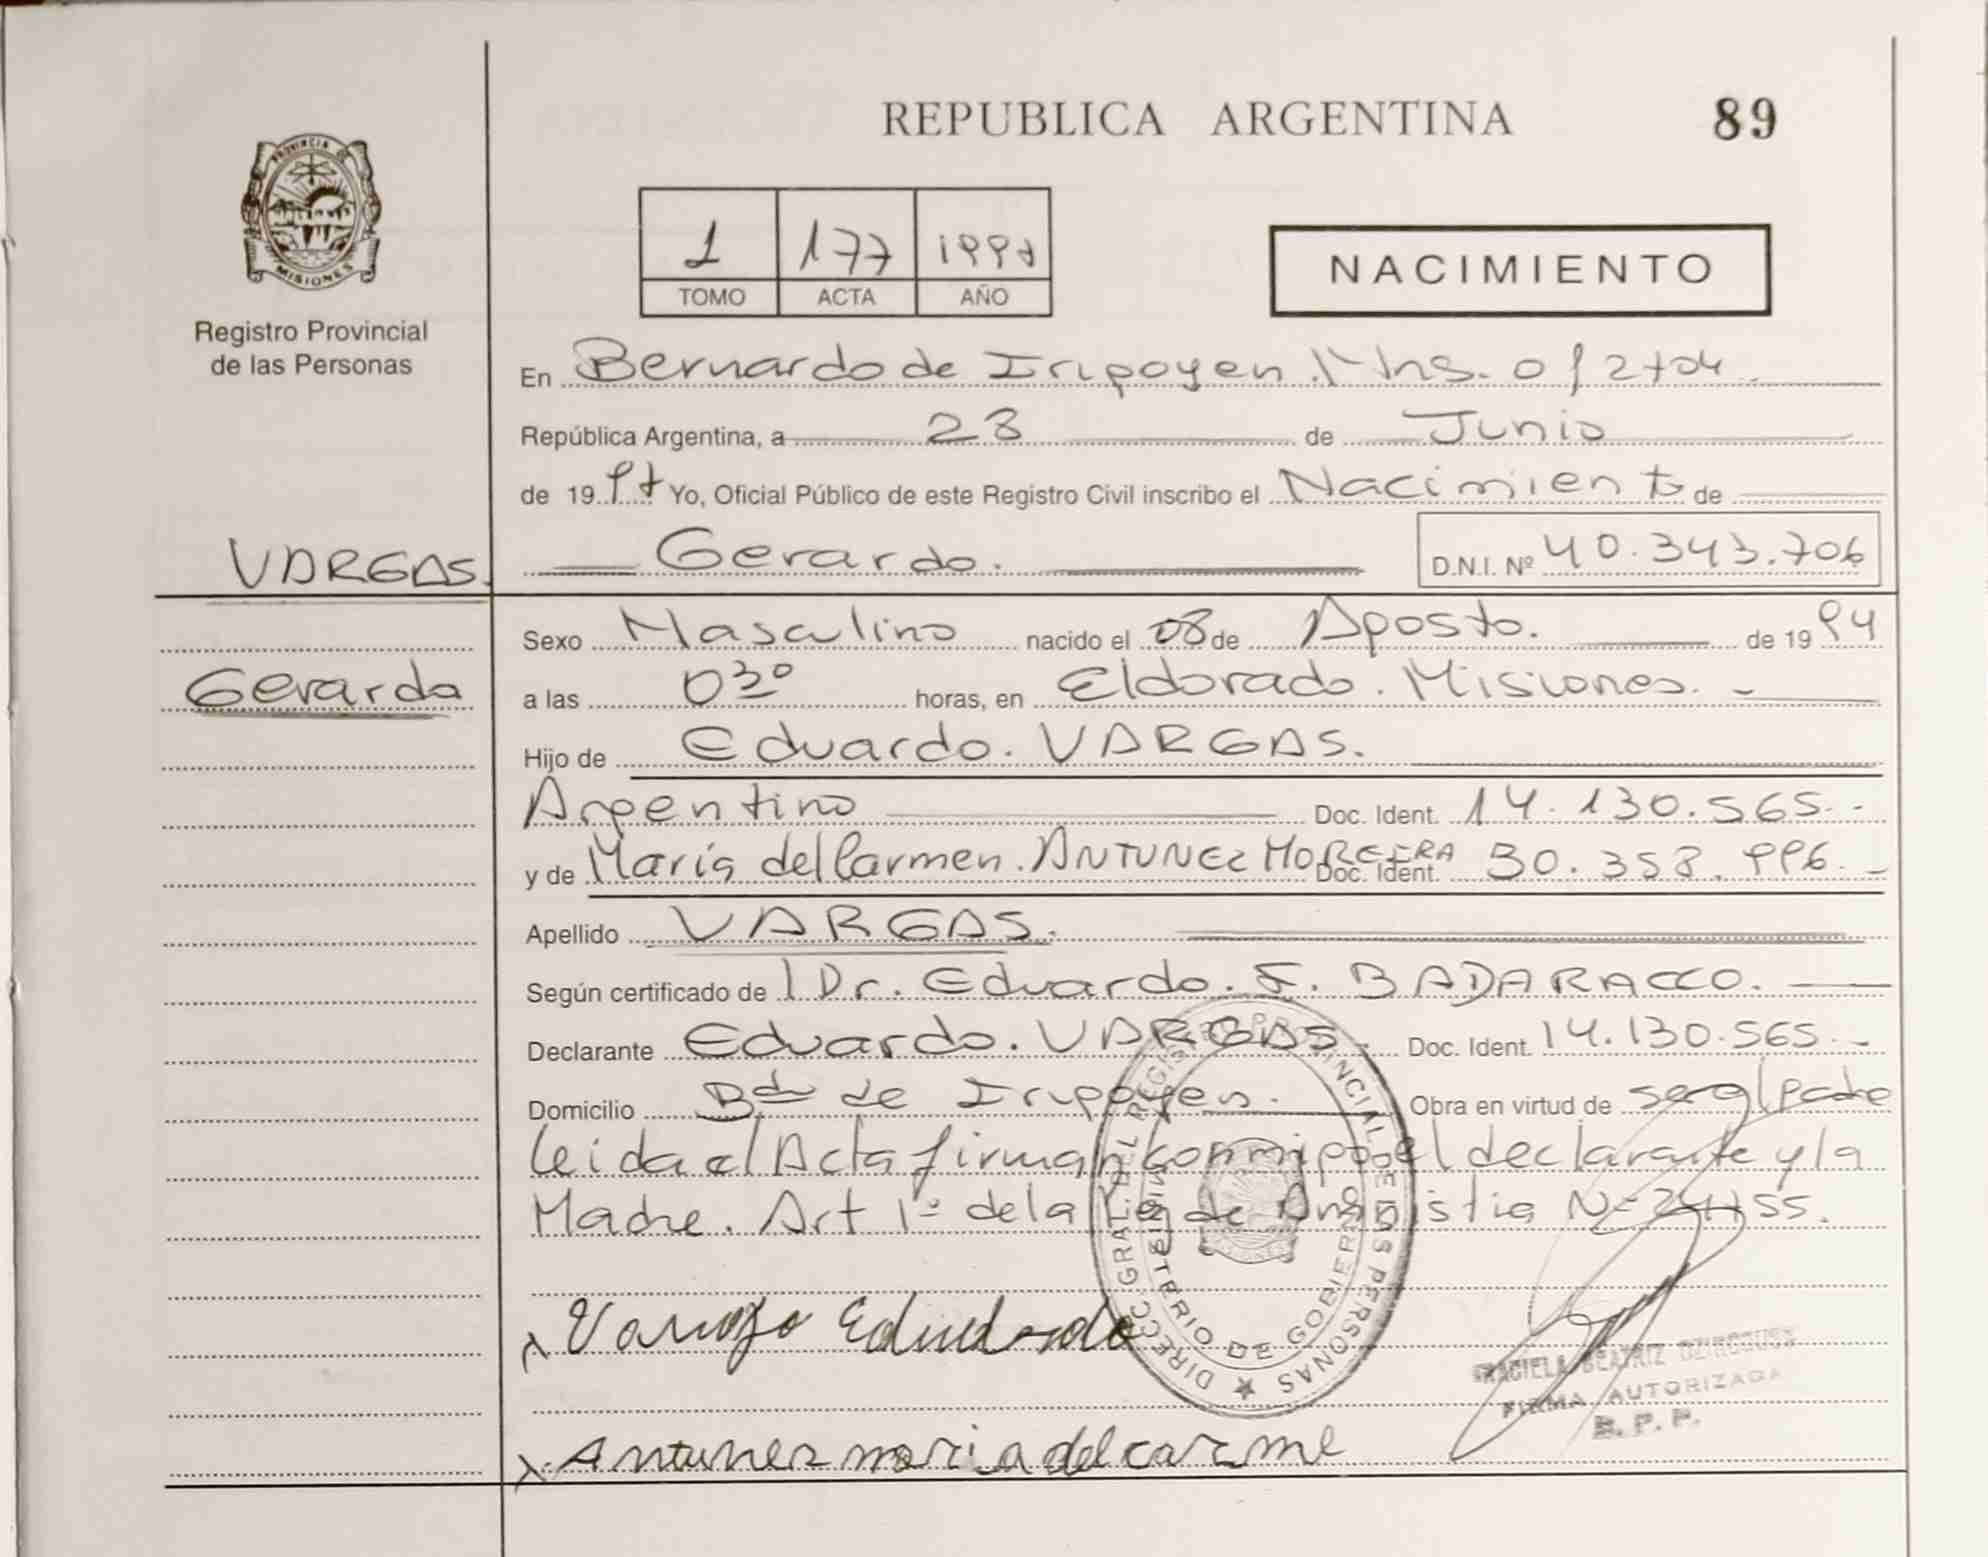 REPUBLICA ARGENTINA
89
PROVINCIA DE
MISIONES
Registro Provincial
de las Personas
1 177 1997
TOMO ACTA AÑO
NACIMIENTO
En Bernardo de Irigoyen Mns. of 2704.
República Argentina, a 23 de Junio
de 1997 Yo, Oficial Público de este Registro Civil inscribo el Nacimiento de
VARGAS.
Gerardo.
D.N.I. Nº 40.343.706
Gerardo
Sexo Masculino nacido el 08 de Agosto. de 1994
a las 03 horas, en Eldorado. Misiones.-
Hijo de Eduardo. VARGAS.
Argentino Doc. Ident. 14.130.565.-
y de María del Carmen. ANTUNEZ MOREIRA Doc. Ident. 30.353.996.-
Apellido VARGAS.
Según certificado de l Dr. Eduardo. F. BADARACCO.
Declarante Eduardo. VARGAS. Doc. Ident. 14.130.565.-
Domicilio Bdo de Irigoyen. Obra en virtud de ser el Padre
leida el Acta firman conmigo el declarante y la
Madre. Art 1º de la Ley de Amnistia Nº 24755.
DIRECC. GRAL. DEL REGISTRO PROVINCIAL DE LAS PERSONAS
MINISTERIO DE GOBIERNO
x Vargas Eduardo
GRACIELA BEATRIZ
FIRMA AUTORIZADA
R. P. P.
x Antunez maria del carme